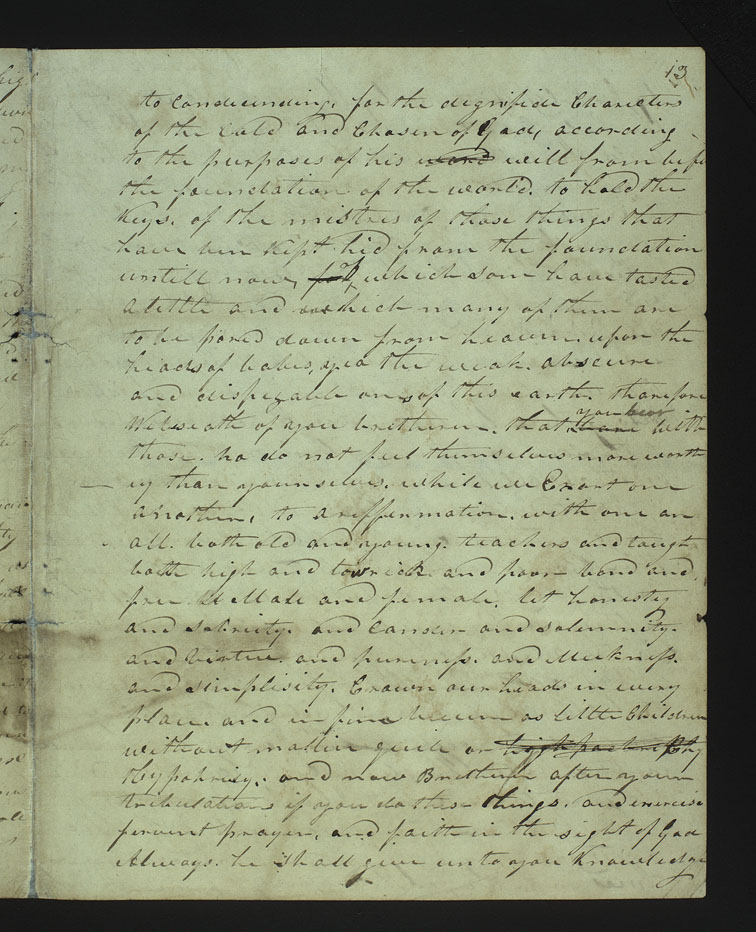 13
to Condecending, for the degnifide Charecters
of the Cald and Chosen of God, according
to the purposes of his word will from befo
the foundation of the world. to hold the
Keys. of the mistres of those things that
have ben Kept hid from the foundation
untill now, for of which som have tasted
a little and which many of them are
to be pored down from heaven upon the
heads of babes, yea the weak. obscure
and dispizable ones of this earth. tharefore
We beseath of you bretheren. that you bear with
those. ho do not feel themselves more worth
y than yourselves. while we Exort one
another, to a reffermation. with one an
all. both old and young. teachers and taugh
both high and low rich and poor bond and
free. Male and female. let honesty
and sobriety. and Candor and solemnity.
and virtue. and pureness. and Meekness.
and simplisity. Crown our heads in every
place. and in fine becum as little Children
without mallice guile or high packrisy
Hypokricy. and now Bretheren after your
tribulations if you do these things. and exercise
fervent prayer, and faith in the sight of God
Always. he shall give unto you Knowledge